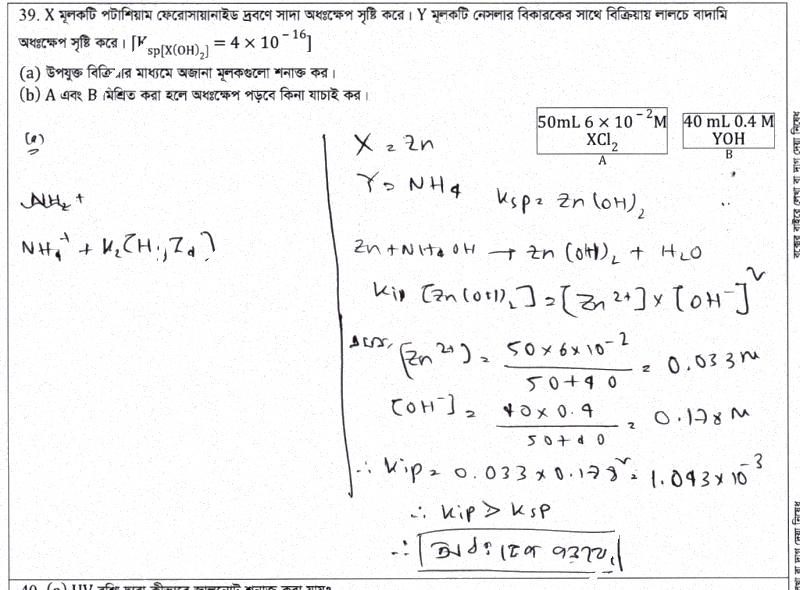 39. X মূলকটি পটাশিয়াম ফেরোসায়ানাইড দ্রবণে সাদা অধঃক্ষেপ সৃষ্টি করে। Y মূলকটি নেসলার বিকারকের সাথে বিক্রিয়ায় লালচে বাদামি
অধঃক্ষেপ সৃষ্টি করে। [K sp[X(OH)₂] = 4 × 10⁻¹⁶]
(a) উপযুক্ত বিক্রিয়ার মাধ্যমে অজানা মূলকগুলো শনাক্ত কর।
(b) A এবং B মিশ্রিত করা হলে অধঃক্ষেপ পড়বে কিনা যাচাই কর।
50mL 6 × 10⁻²M
XCl₂
A
40 mL 0.4 M
YOH
B
(a)
NH₄⁺ + K₂[H
X = Zn
Y = NH4
Ksp = Zn(OH)₂
Zn + NH4OH → Zn(OH)₂ + H₂O
Kip [Zn(OH)₂] = [Zn²⁺] × [OH⁻]²
[Zn²⁺] = 50×6×10⁻² / 50+40 = 0.033 M
[OH⁻] = 40×0.4 / 50+40 = 0.178 M
∴ Kip = 0.033 × 0.178² = 1.043×10⁻³
∴ Kip > Ksp
∴ অধঃক্ষেপ পড়বে।